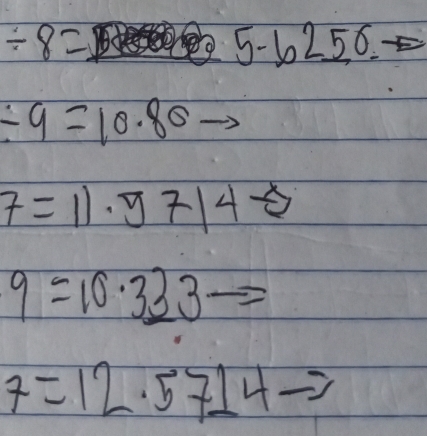 ÷ 8 = 5.6250 →
÷ 9 = 10.80 →
7 = 11.5714 →
9 = 10.333 →
7 = 12.5714 →